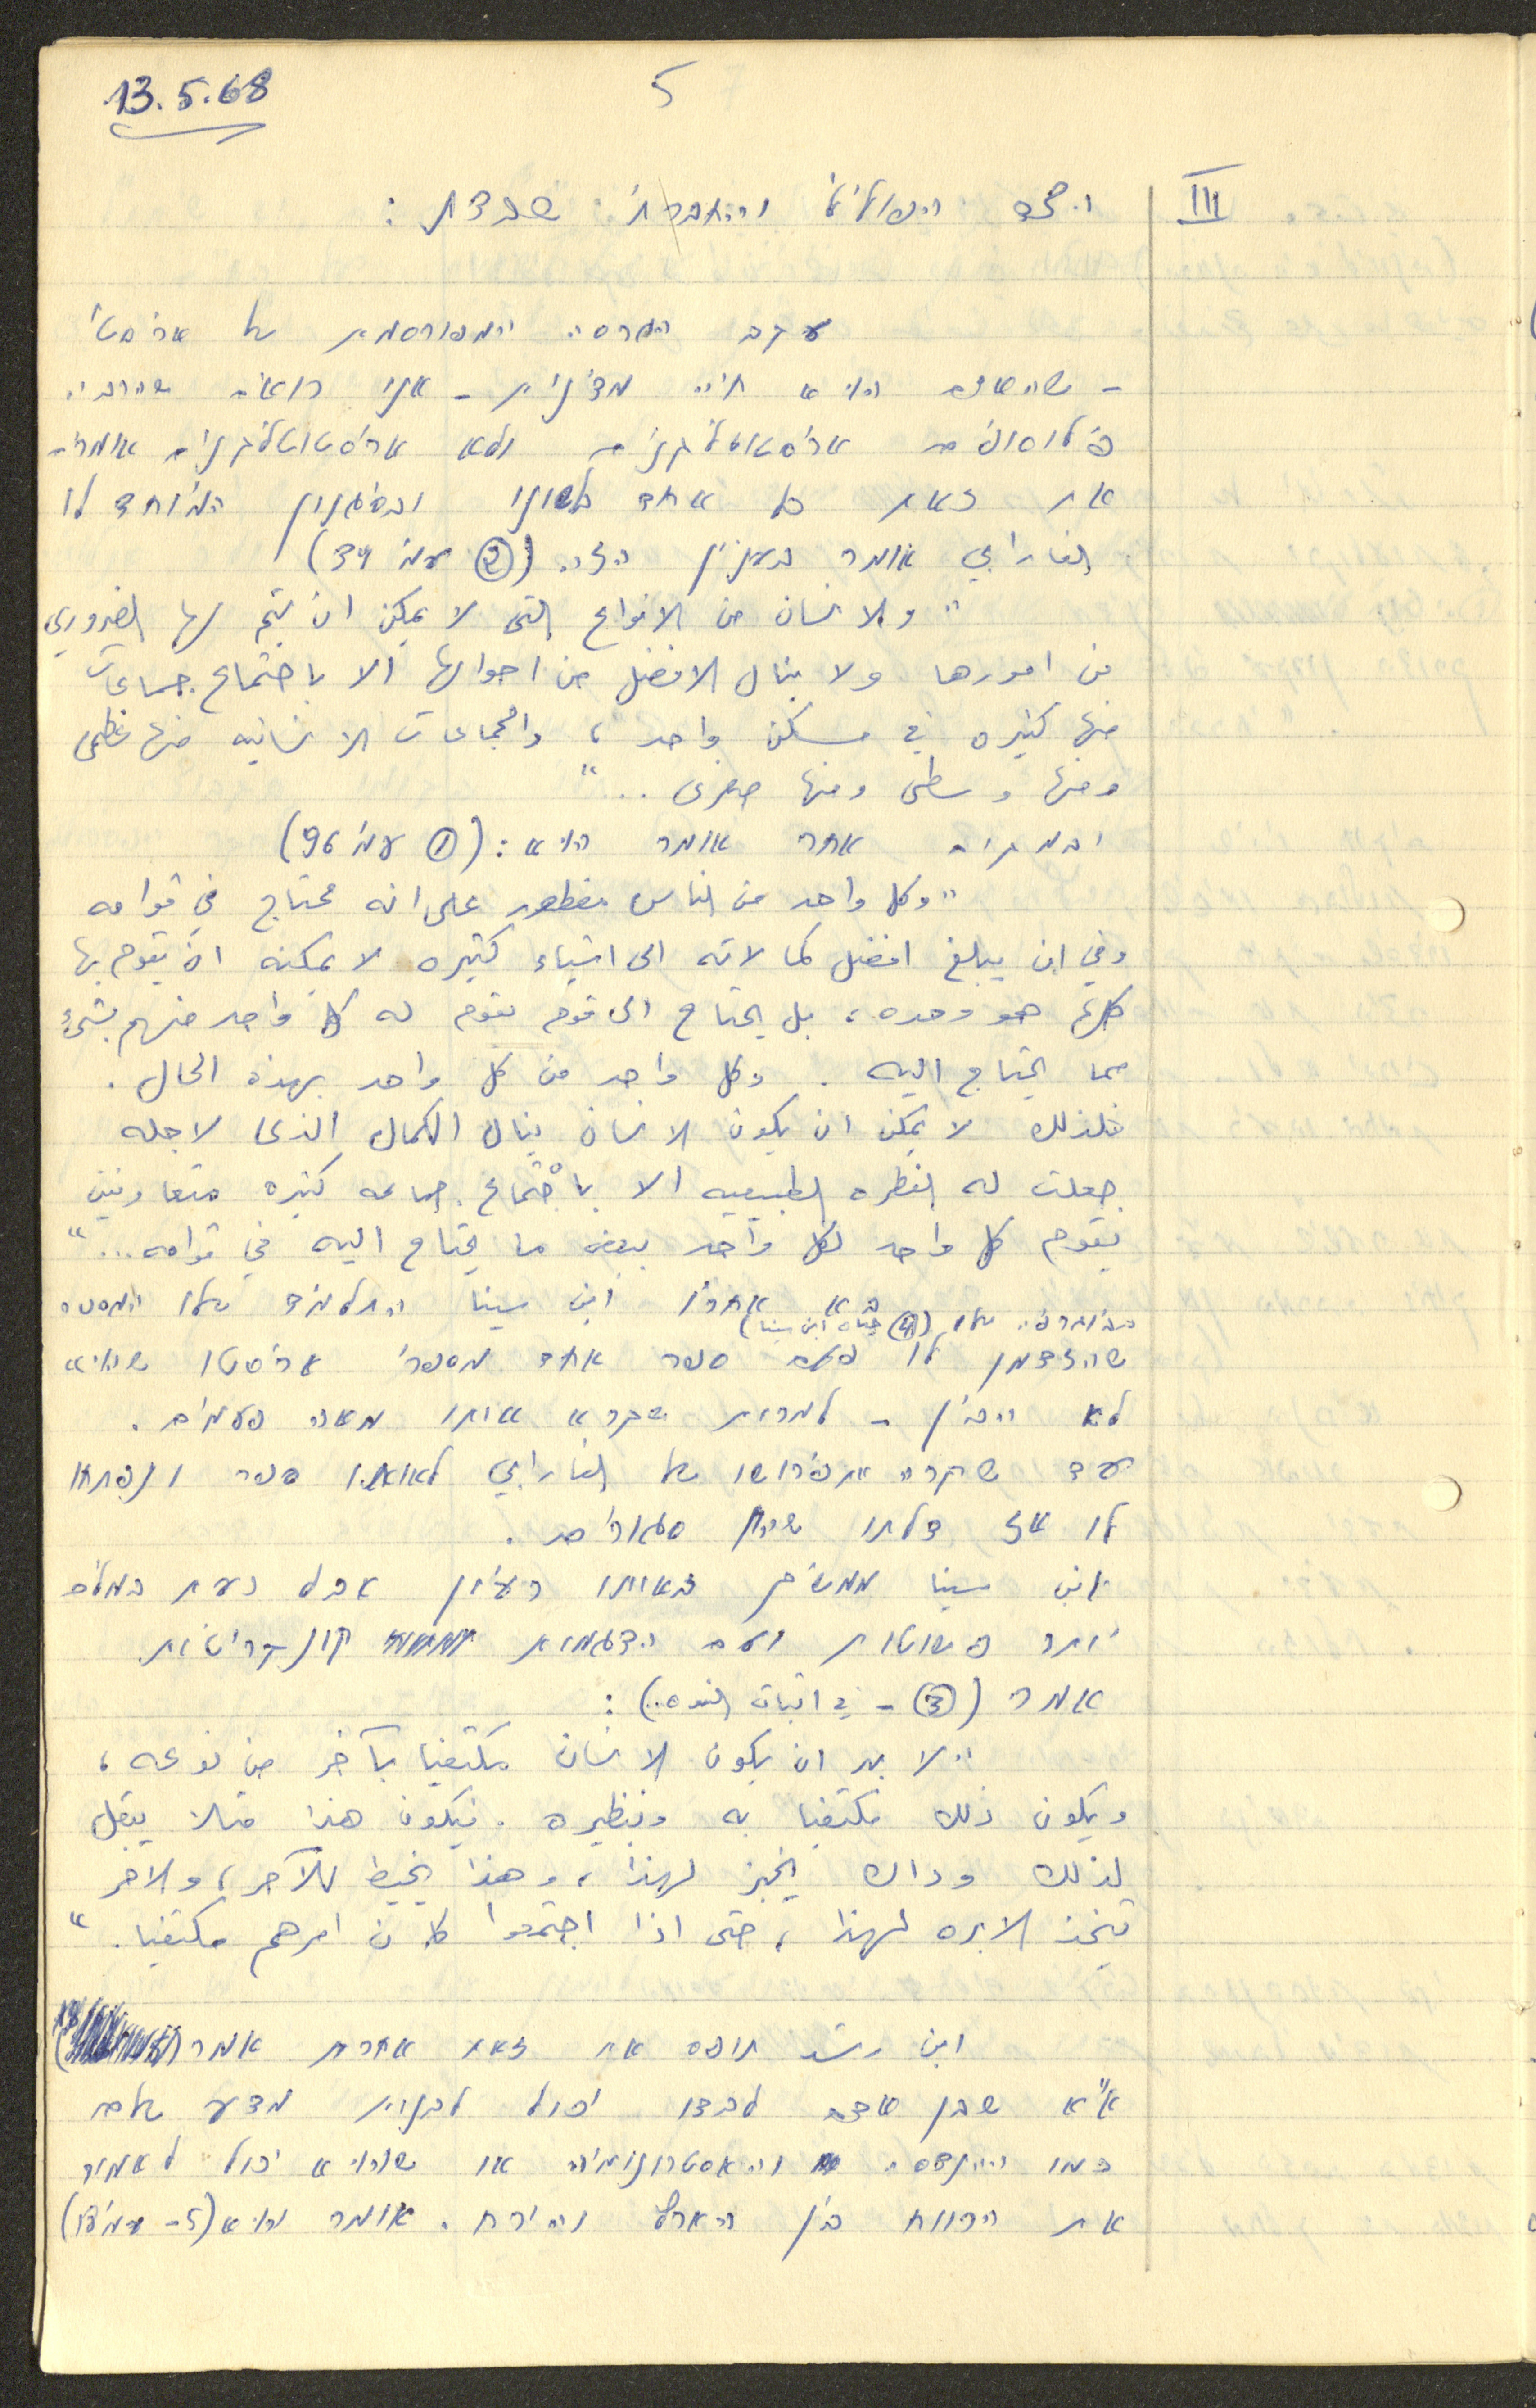 13.5.68
5
III
עקב הגרסה המפורסמת של אריסטו
- שהאדם הוא חיה מדינית - אנו רואים שהרבה
פילוסופים אריסטוטליניים ולא אריסטוטליניים אומרים
את זאת כל אחד בלשונו ובסגנון המיוחד לו
الفارابي אומר בענין הזה (② עמ׳ 39)
"والانسان من الانواع التى لا يمكن ان يتم لها الضروري
من امورها ولا ينال الافضل من احوالها الا باجتماع جماعات
منها كثيره في مسكن واحد، والجماعات الانسانيه منها عظمى
ومنها وسطى ومنها صغرى .."
ובמקום אחר אומר הוא: (① עמ׳ 96)
"وكل واحد من الناس مفطور على انه محتاج في قوامه
وفي ان يبلغ افضل كمالاته الى اشياء كثيره لا يمكنه ان يقوم بها
كلها هو وحده، بل يحتاج الى قوم يقوم له كل واحد منهم بشيء
مما يحتاج اليه. وكل واحد من كل واحد بهذه الحال.
فلذلك لا يمكن ان يكون الانسان ينال الكمال الذى لاجله
جعلت له الفطره الطبيعيه الا باجتماع جماعه كثيره متعاونين
يقوم كل واحد لكل واحد ببعض ما يحتاج اليه في قوامه..."
בא אחריו ابن سينا התלמיד שלו המספר
בביוגרפיה שלו (④ حياة ابن سينا)
שהזדמן לו פעם ספר אחד מספרי אריסטו שהוא
לא הבין - למרות שקרא אותו מאה פעמים.
עד שקרה פירושו של الفارابي לאותו ספר ונפתחו
לו אז דלתו שהיו סגורים.
ابن سينا ממשיך באותו רעיון אבל כעת במלים
יותר פשוטות ועם הדגמות קונקריטיות
אמר (③ - في اثبات النبوه..):
"لا بد ان يكون الانسان مكتفيا بآخر من نوعه،
ويكون ذلك مكتفيا به وبنظيره. فيكون هذا مثلا ينقل
لذلك وذاك يخبز لهذا، وهذا يخيط للآخر، والاخر
يتخذ الابره لهذا، حتى اذا اجتمعوا كان امرهم مكتفيا."
ابن رشد תופס את זאת אחרת אמר
א״א שבן אדם לבדו יכול לקנות מדע שלם
כמו ההנדסה והאסטרונומיה או שהוא יכול לאמוד
את הרווח בין הארץ והירח. אומר הוא (5 - עמ׳ 13)